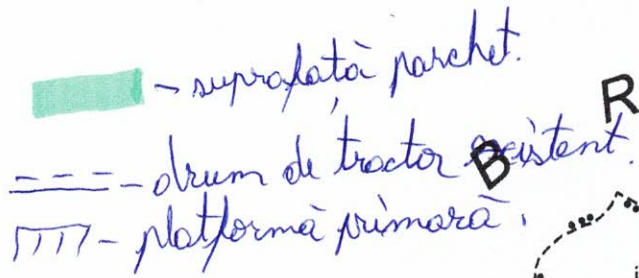 - suprafață parchet.
R
- drum de tractor existent.
B
- platformă primară.